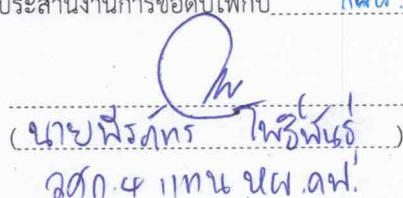 ประสานงานการขอดับไฟกับ กฟผ.
(นายพีรภัทร โพธิ์พันธุ์)
วศก.4 แทน หผ.